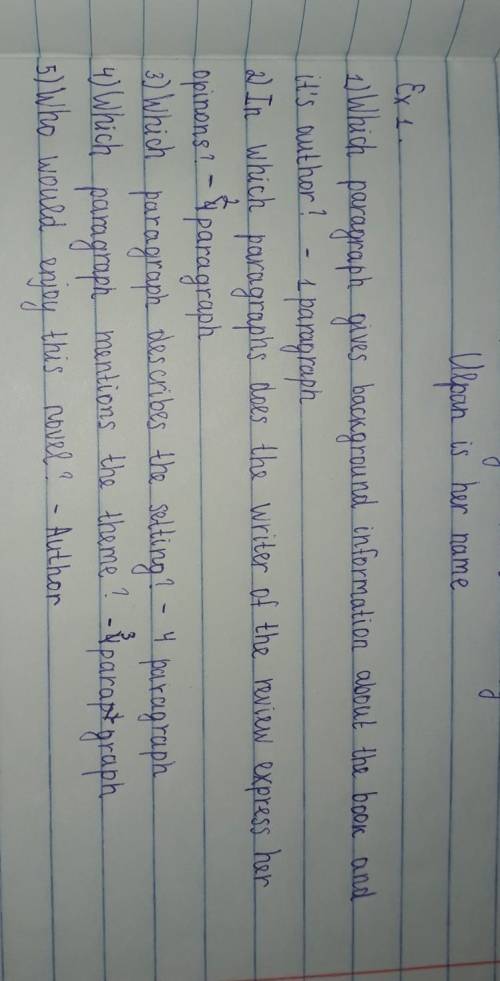 Ulpan is her name
Ex 1.
1) Which paragraph gives background information about the book and
it's author? - 1 paragraph
2) In which paragraphs does the writer of the review express her
opinons? - 2 paragraph
3) Which paragraph describes the setting? - 4 paragraph
4) Which paragraph mentions the theme? - 3 paragraph
5) Who would enjoy this novel? - Author